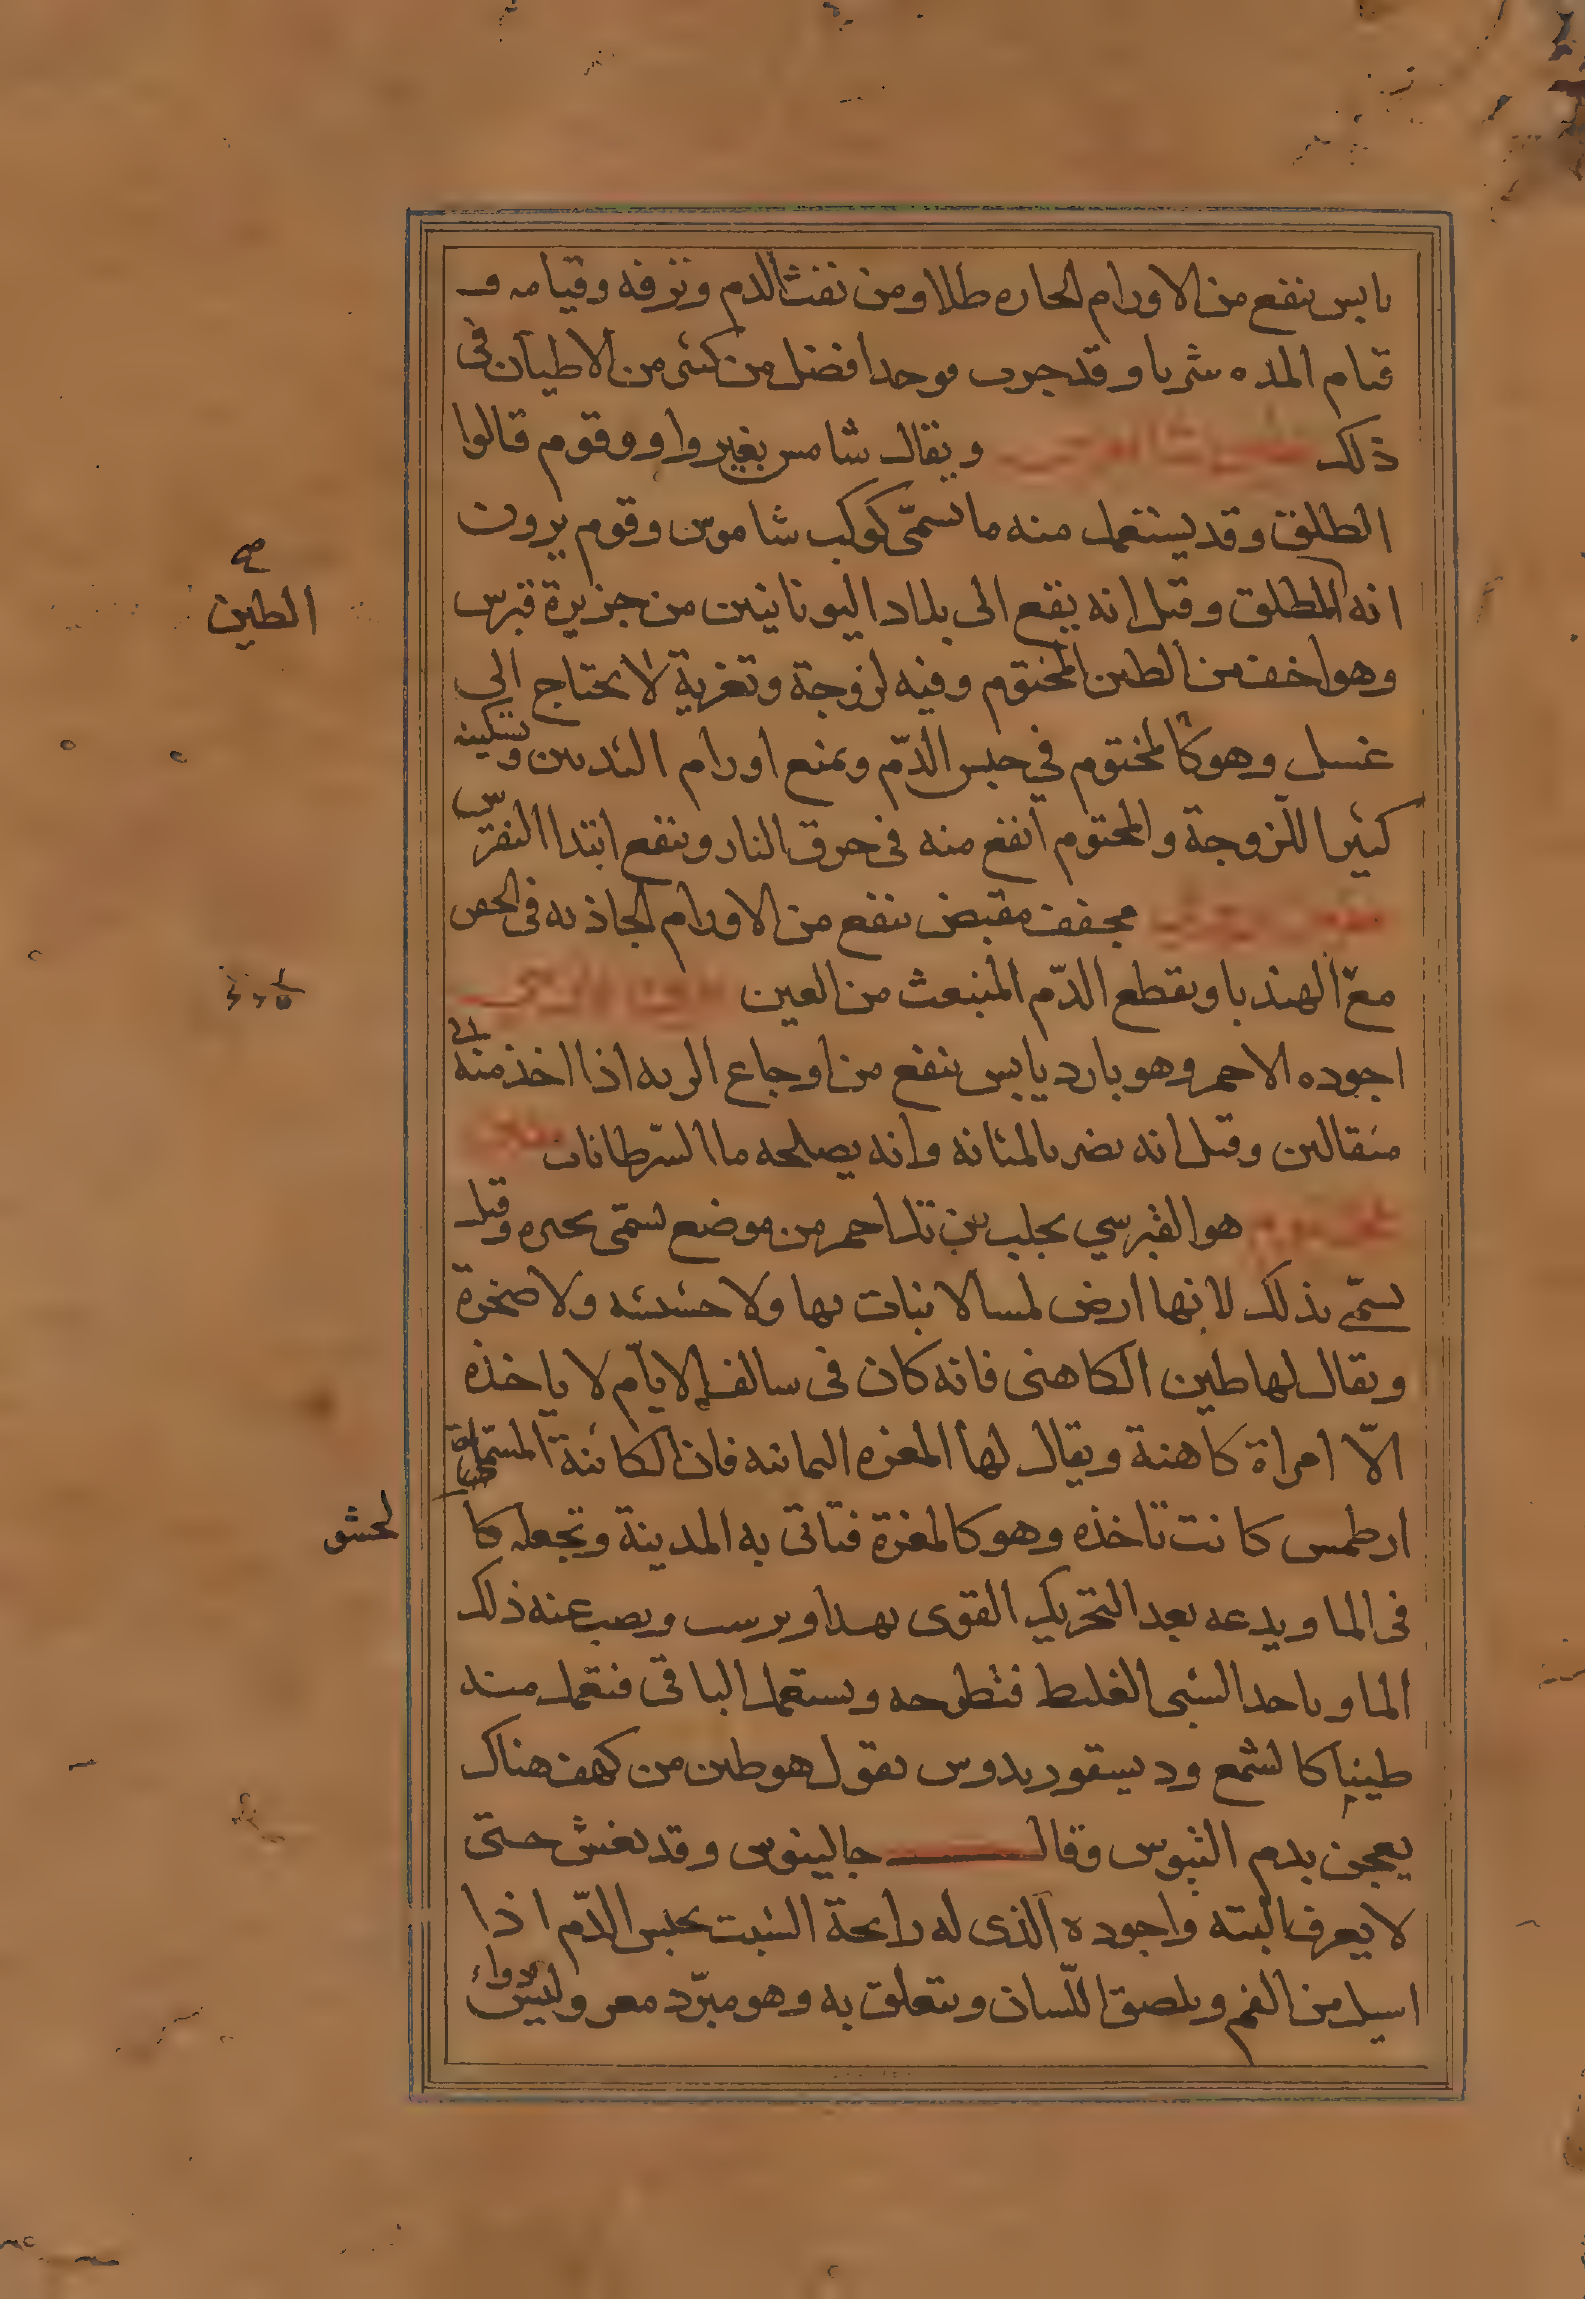 يابس ينفع من الاورام الحاره طلا ومن نفث الدم ونزفه وقيامه و
قيام المده شربا وقد جرب فوجد افضل من كثير من الاطيان في
ذلك طين شاموس ويقال شامس بغير واو وقوم قالوا
الطلق وقد يستعمل منه ما يسمّى كوكب شاموس وقوم يرون
انه المطلق وقيل انه يقع الى بلاد اليونانيين من جزيرة قبرس
وهو اخف من الطين المختوم وفيه لزوجة وتغرية لا يحتاج الى
غسل وهو كالمختوم في حبس الدّم ويمنع اورام الثديين وتسكينه
كثيرا للزوجة والمختوم انفع منه في حرق النار وينفع ابتدا النقرس
مجفف مقبض ينفع من الاورام الحاذيه في الحص
مع الهندبا ويقطع الدّم المنبعث من العين
اجوده الاحمر وهو بارد يابس ينفع من اوجاع الريه اذا اخذ منه
مثقالين وقيل انه يضر بالمثانه وانه يصلحه ما السّرطانات طين
مختوم هو القبرسي يجلب من تل احمر من موضع يسمّى بحيره وقيل
يسمّى بذلك لانها ارض لمسا لا نبات بها ولا حشيشه ولا صخرة
ويقال لها طين الكاهنى فانه كان في سالف الايام لا ياخذه
الّا امراة كاهنة ويقال لها المغره اليمانيه فان الكائنة المسّماة
ارطمس كانت تاخذه وهو كالمغرة فتاتى به المدينة وتجعله كا
في الما ويدعه بعد التحريك القوى يهدا ويرسب ويصب عنه ذلك
الما وياخذ الشى الغليط فتطرحه ويستعمل الباقى فتعمل منه
طينا كالشمع وديسقوريدوس يقول هو طين من كهف هناك
يعجن بدم التيوس وقال جالينوس وقد يغش حتى
لا يعرف البته واجوده الذى له رايحة الشبت يحبس الدّم اذا
اسيل من الفم ويلصق اللّسان ويتعلق به وهو مبرّد مغر وليس دواء
الطين
لحشو